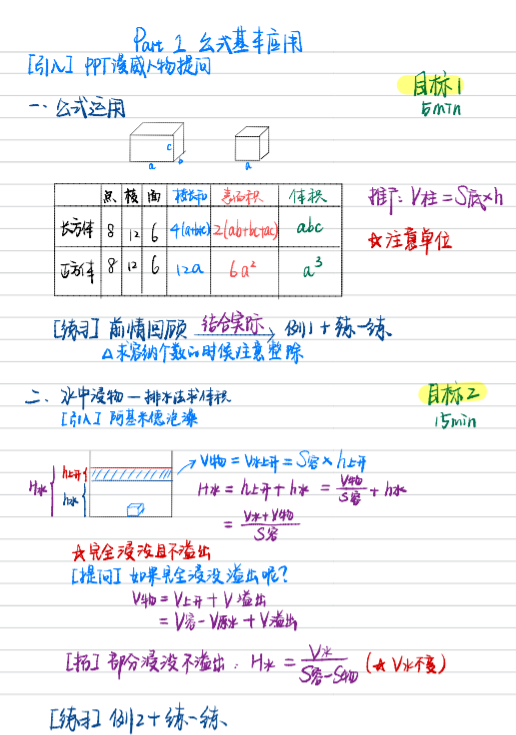 Part 1 公式基本应用
[引入] PPT漫威人物提问
目标1
5min
一、公式运用
c
a b a
点 棱 面 棱长和 表面积 体积
长方体 8 12 6 4(a+b+c) 2(ab+bc+ac) abc
正方体 8 12 6 12a 6a² a³
推广: V柱=S底×h
☆注意单位
[练习] 前情回顾 结合实际→ 例1+练一练
△求容纳个数的时候注意整除
二、水中浸物—排水法求体积
目标2
15min
[引入] 阿基米德泡澡
H水 h上升 h水
→V物=V水上升=S容×h上升
H水=h上升+h水=V物/S容+h水
=V水+V物/S容
☆完全浸没且不溢出
[提问] 如果完全浸没溢出呢?
V物=V上升+V溢出
=V容-V原水+V溢出
[拓] 部分浸没不溢出: H水=V水/S容-S物 (☆V水不变)
[练习] 例2+练一练、